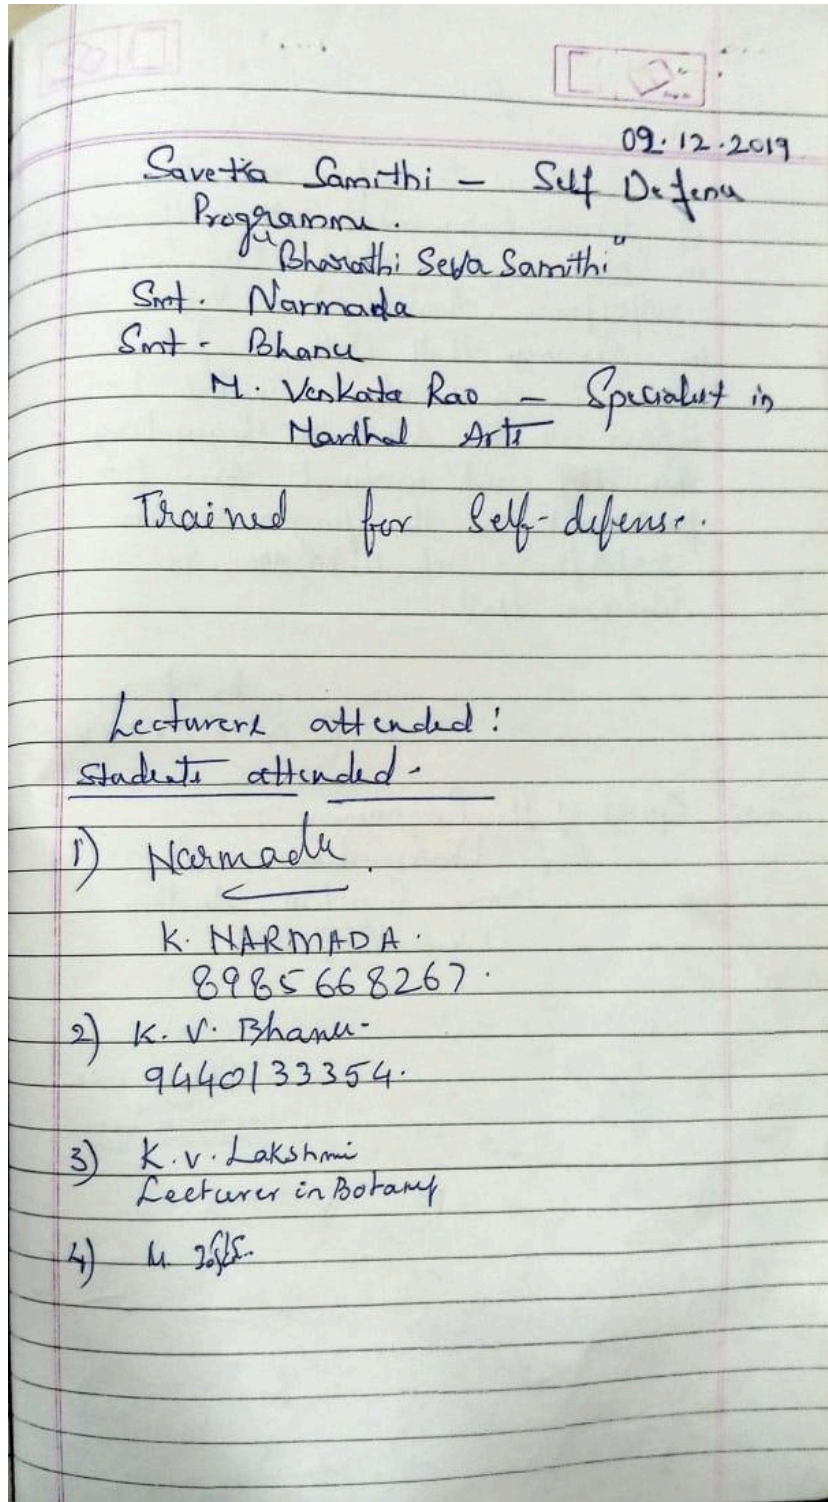 09.12.2019
Savetha Samithi - Self Defence
Programme.
"Bharathi Seva Samithi"
Smt. Narmada
Smt - Bhanu
M. Venkata Rao - Specialist in
Marthal Arts
Trained for Self-defense.
Lecturers attended:
Students attended -
1) Narmada.
K. NARMADA.
8985668267.
2) K. V. Bhanu-
9440133354.
3) K.V. Lakshmi
Lecturer in Botany
4) M.